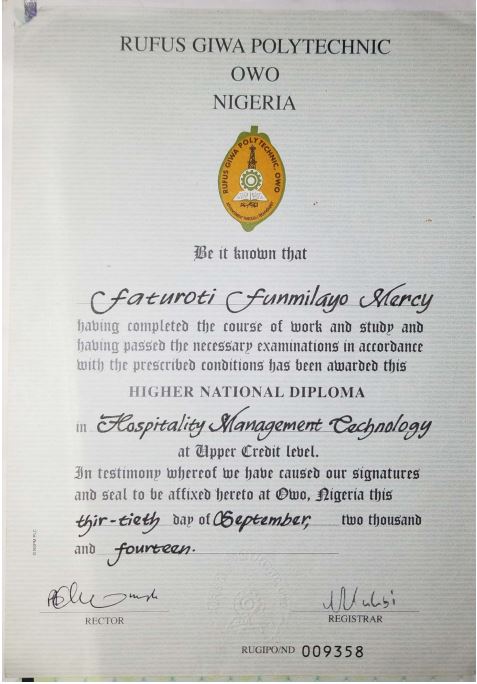 RUFUS GIWA POLYTECHNIC
OWO
NIGERIA
RUFUS GIWA POLYTECHNIC, OWO
Be it known that
Faturoti Funmilayo Mercy
having completed the course of work and study and
having passed the necessary examinations in accordance
with the prescribed conditions has been awarded this
HIGHER NATIONAL DIPLOMA
in Hospitality Management Technology
at Upper Credit level.
In testimony whereof we have caused our signatures
and seal to be affixed hereto at Owo, Nigeria this
thir-tieth day of September, two thousand
and fourteen.
RECTOR
REGISTRAR
RUGIPO/ND 009358